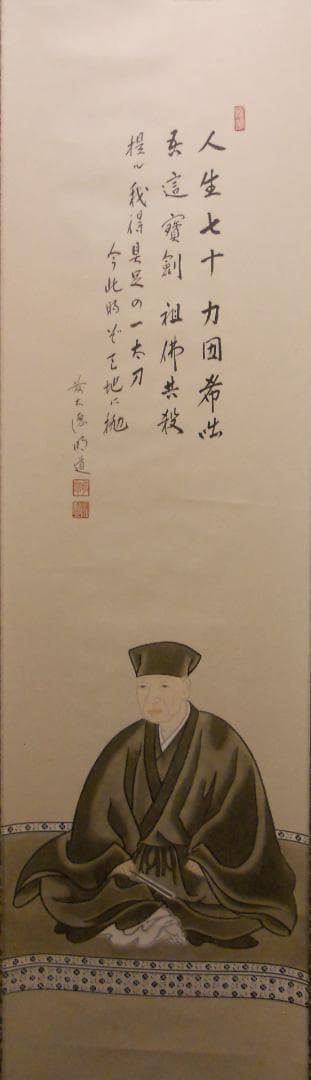 人生七十 力囲希咄
吾這寶劍 祖佛共殺
提ル我得具足の一太刀
今此時ぞ天地に抛
大德明道